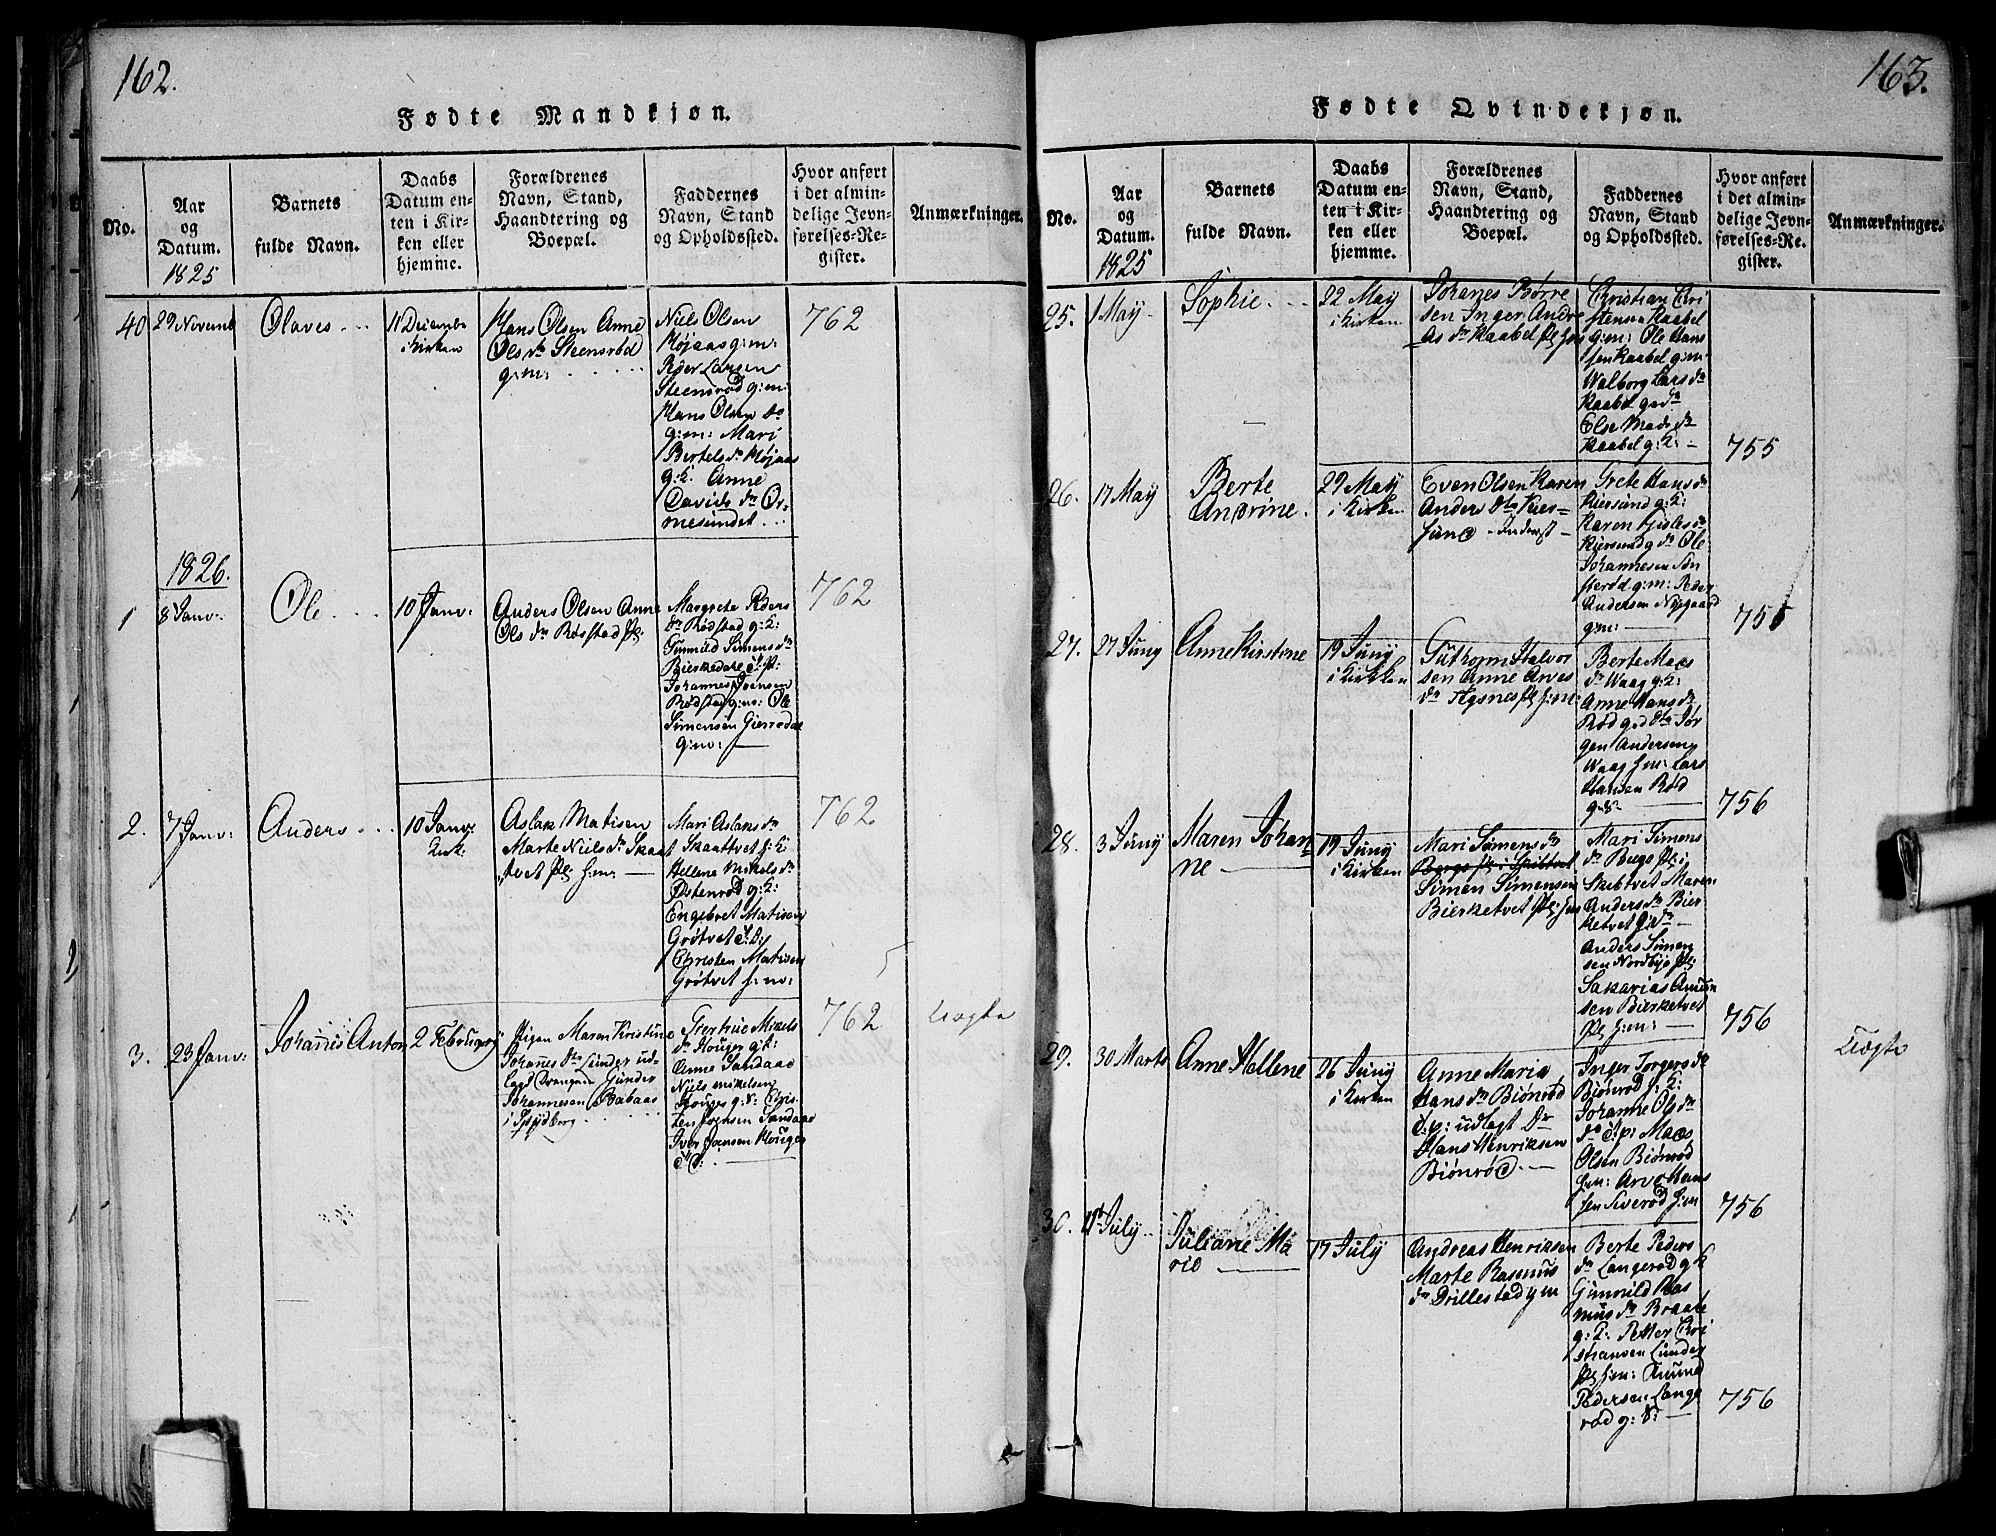 162.
Fødte Mandkjøn.
No.
Aar
og
Datum.
1825
Barnets
fulde Navn.
Daabs
Datum en-
ten i Kir-
ken eller
hjemme.
Forældrenes
Navn, Stand,
Haandtering og
Boepæl.
Faddernes
Navn, Stand
og Opholdssted.
Hvor anført
i det almin-
delige Jevn-
førelses-Re-
gister.
Anmærkninger.
40
29 Novemb
Olaves
11 Decembr
i Kirken
Hans Olsen Anne
Ols dr Steensrød
g:m:
Niels Olsen
Højaas g:m:
Roer Larsen
Steensrød g:m:
Hans Olsen do
g:m: Mari
Bertels dr Højaas
g:k: Anne
Davids dr Or-
mesundet
762
1826.
1
8 Janv:
Ole
10 Janv:
Anders Olsen Anne
Ols dr Røstad pl:
Margrete Peders
dr Rødstad g:k:
Gunnild Simens dr
Bierkedele
Johannes Joensen
Rødstad g:m: Ole
Simensen
g:m:
762
2.
7 Janv:
Anders
10 Janv:
Kirk:
Aslak Matisen
Marte Niels dr Skaat
tvet pl: h:m:
Mari Aslaks dr
Skaattvet h:k:
Hellene Mikels dr
Østenrød g:k:
Engebret Matisen
Grøtvet
Christen Matisen
Grøtvet h:m:
762
3.
23 Janv:
Johanes Anton
2 Februarj
Pigen Maren Kristine
Johanes dr Lunder ud-
lagd Drængen Gunder
Johannesen Babaas
i Spydberg
Giertrue Mikels
dr Houger g:k:
Anne Sandaas
Niels Mikelsen
Houges g:k: Cris
ten Joensen Sandaas
Iver Jansen Houger
762
Uægte
163.
Fødte Qvindekjøn.
No.
Aar
og
Datum.
1825
Barnets
fulde Navn.
Daabs
Datum en-
ten i Kir-
ken eller
hjemme.
Forældrenes
Navn, Stand,
Haandtering og
Boepæl.
Faddernes
Navn, Stand
og Opholdssted.
Hvor anført
i det almin-
delige Jevn-
førelses-Re-
gister.
Anmærkninger.
25.
1 May
Sophie
22 May
i Kirken
Johanes Børre
sen Inger Andre
as dr Kaabel pl h:m
Christian Cri
stensen Kaabel
g:m: Ole Hans
sen Kaabel g:m:
Walborg Lars dr
Kaabel
Else Mads dr
Kaabel g:k:
755
26.
17 May
Berte
Andrine.
29 May
i Kirken
Even Olsen Karen
Anders dtr Kier-
sund inderst
Grete Hans dr
Kiersund g:k:
Karen Gisles dr
Kiersund g dr Ole
Johannesen
g:m: Peder
Andersen Nygaard
g:m:
755
27.
27 Juny
Anne Kirstine
19 Juny
i Kirken
Guthorm Halvor
sen Anne Arves
dr Tegnes pl h:m:
Berte Maes
dr Waag g:k:
Anne Hans dr
Rød Jør
gen Andersen
Waag h:m: Lars
Hansen Rød
756
28.
3 Juny
Maren Johan
ne
19 Juny
i Kirken
Mari Simens dr
Bergs pl: i Skibtvet
Simen Simensen
Bierketvet pl: h:m
Mari Simens
dr Bergs pl: i
Skibtvet Maren
Anders dr Bier
ketvet
Anders Simen
sen Nordbye pl:
Sakarias Amun
sen Bierketvet
pl h:m:
756
29.
30 Marts
Anne Hellene
26 Juny
i Kirken
Anne Maria
Hans dr Biønrød
t:p: udlagt Dr
Hans Henriksen
Biønrød.
Inger Torgers dr
Biønrød h:k:
Johanne Ols dr
do t:p: Maes
Olsen Biønrød
h:m: Arve Hans
sen Siverød h:m
756
Uægte
30.
11 July
Juliane Ma
rie
17 July
Andreas Henriksen
Marte Rasmus
dr Drillestad g m
Berte Peders
dr Langerød g k
Gunnild Ras
mus dr Braate
g:k: Petter Cri
stiansen Lunder
pl h:m: Knund
Pedersen Lange
rød g:k:
756